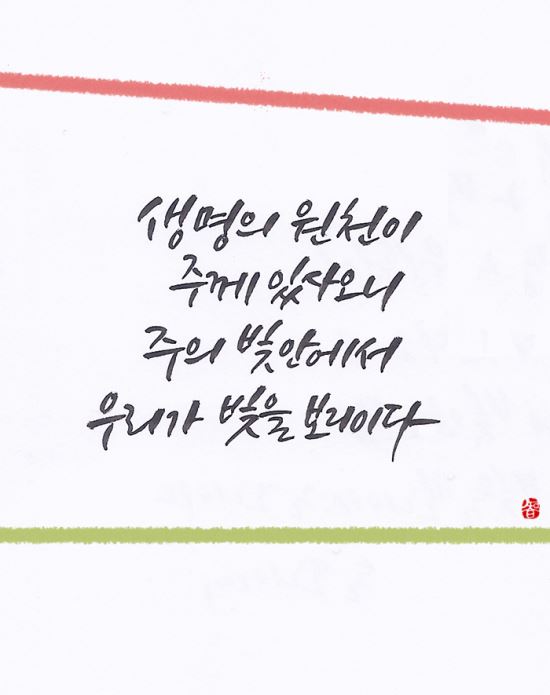 생명의 원천이
주께 있사오니
주의 빛안에서
우리가 빛을 보리이다
智